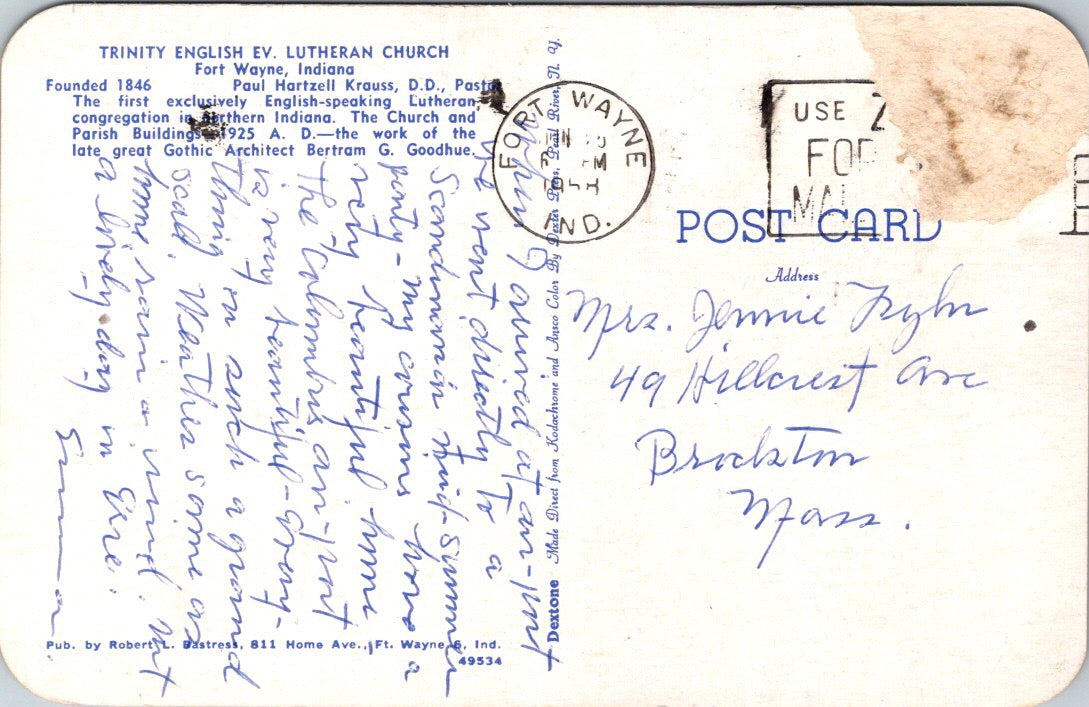 TRINITY ENGLISH EV. LUTHERAN CHURCH
Fort Wayne, Indiana
Founded 1846 Paul Hartzell Krauss, D.D., Pastor
The first exclusively English-speaking Lutheran
congregation in Northern Indiana. The Church and
Parish Buildings 1925 A. D.—the work of the
late great Gothic Architect Bertram G. Goodhue.
When I arrived at air-port
we went directly to a
Scandinavian mid-summer
party - my cousins have a
very beautiful home
The Columbus air-port
is very beautiful - Every-
thing on such a grand
scale. Weather some as
home, rain & wind. Not
a lovely day in there.
Emma
Pub. by Robert L. Bastress, 811 Home Ave., Ft. Wayne 6, Ind.
49534
Dextone Made Direct from Kodachrome and Ansco Color By Dexter Press, Pearl River, N. Y.
FORT WAYNE
IND.
USE
FOR
MAIL
POST CARD
Address
Mrs. Jennie
49 Hillcrest Ave
Brockton
Mass.